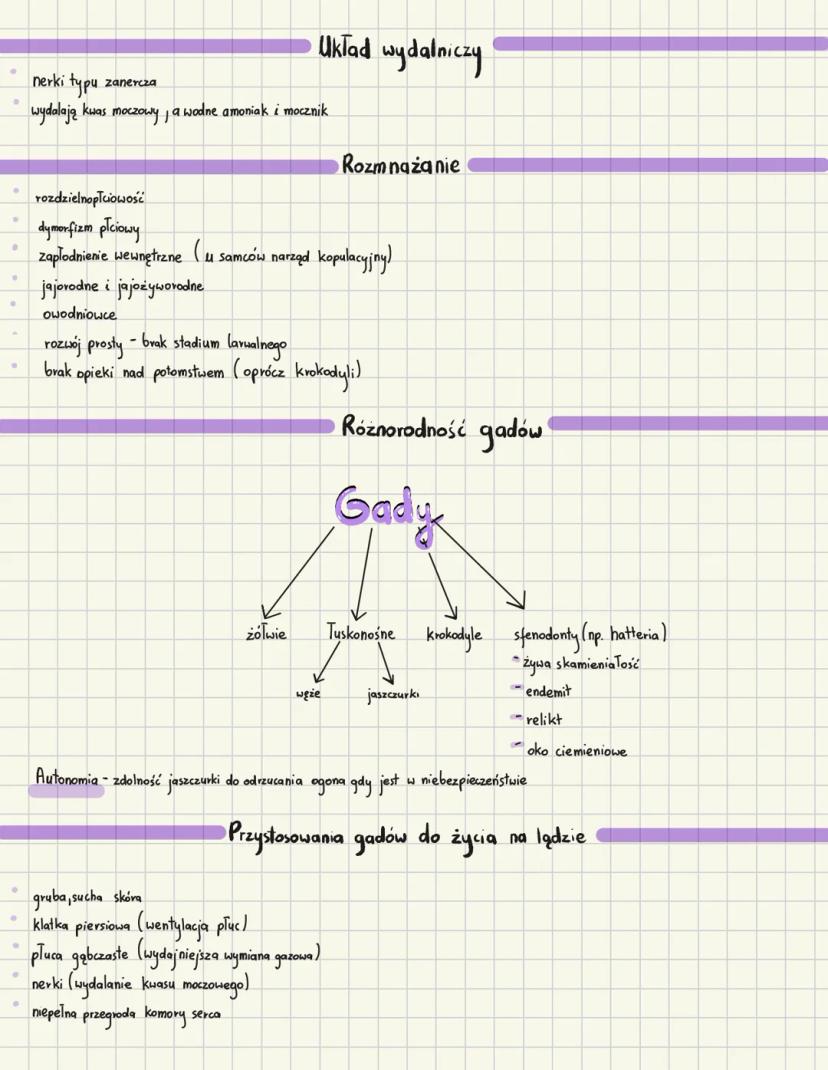 Układ wydalniczy
nerki typu zanercza
wydalają kwas moczowy, a wodne amoniak i mocznik
Rozmnażanie
rozdzielnopłciowość
dymorfizm płciowy
zapłodnienie wewnętrzne (u samców narząd kopulacyjny)
jajorodne i jajożyworodne
owodniowce
rozwój prosty - brak stadium larwalnego
brak opieki nad potomstwem (oprócz krokodyli)
Różnorodność gadów
Gady
żółwie łuskonośne krokodyle sfenodonty (np. hatteria)
- żywa skamieniałość
węże jaszczurki - endemit
- relikt
- oko ciemieniowe
Autonomia - zdolność jaszczurki do odrzucania ogona gdy jest w niebezpieczeństwie
Przystosowania gadów do życia na lądzie
gruba, sucha skóra
klatka piersiowa (wentylacja płuc)
płuca gąbczaste (wydajniejsza wymiana gazowa)
nerki (wydalanie kwasu moczowego)
niepełna przegroda komory serca